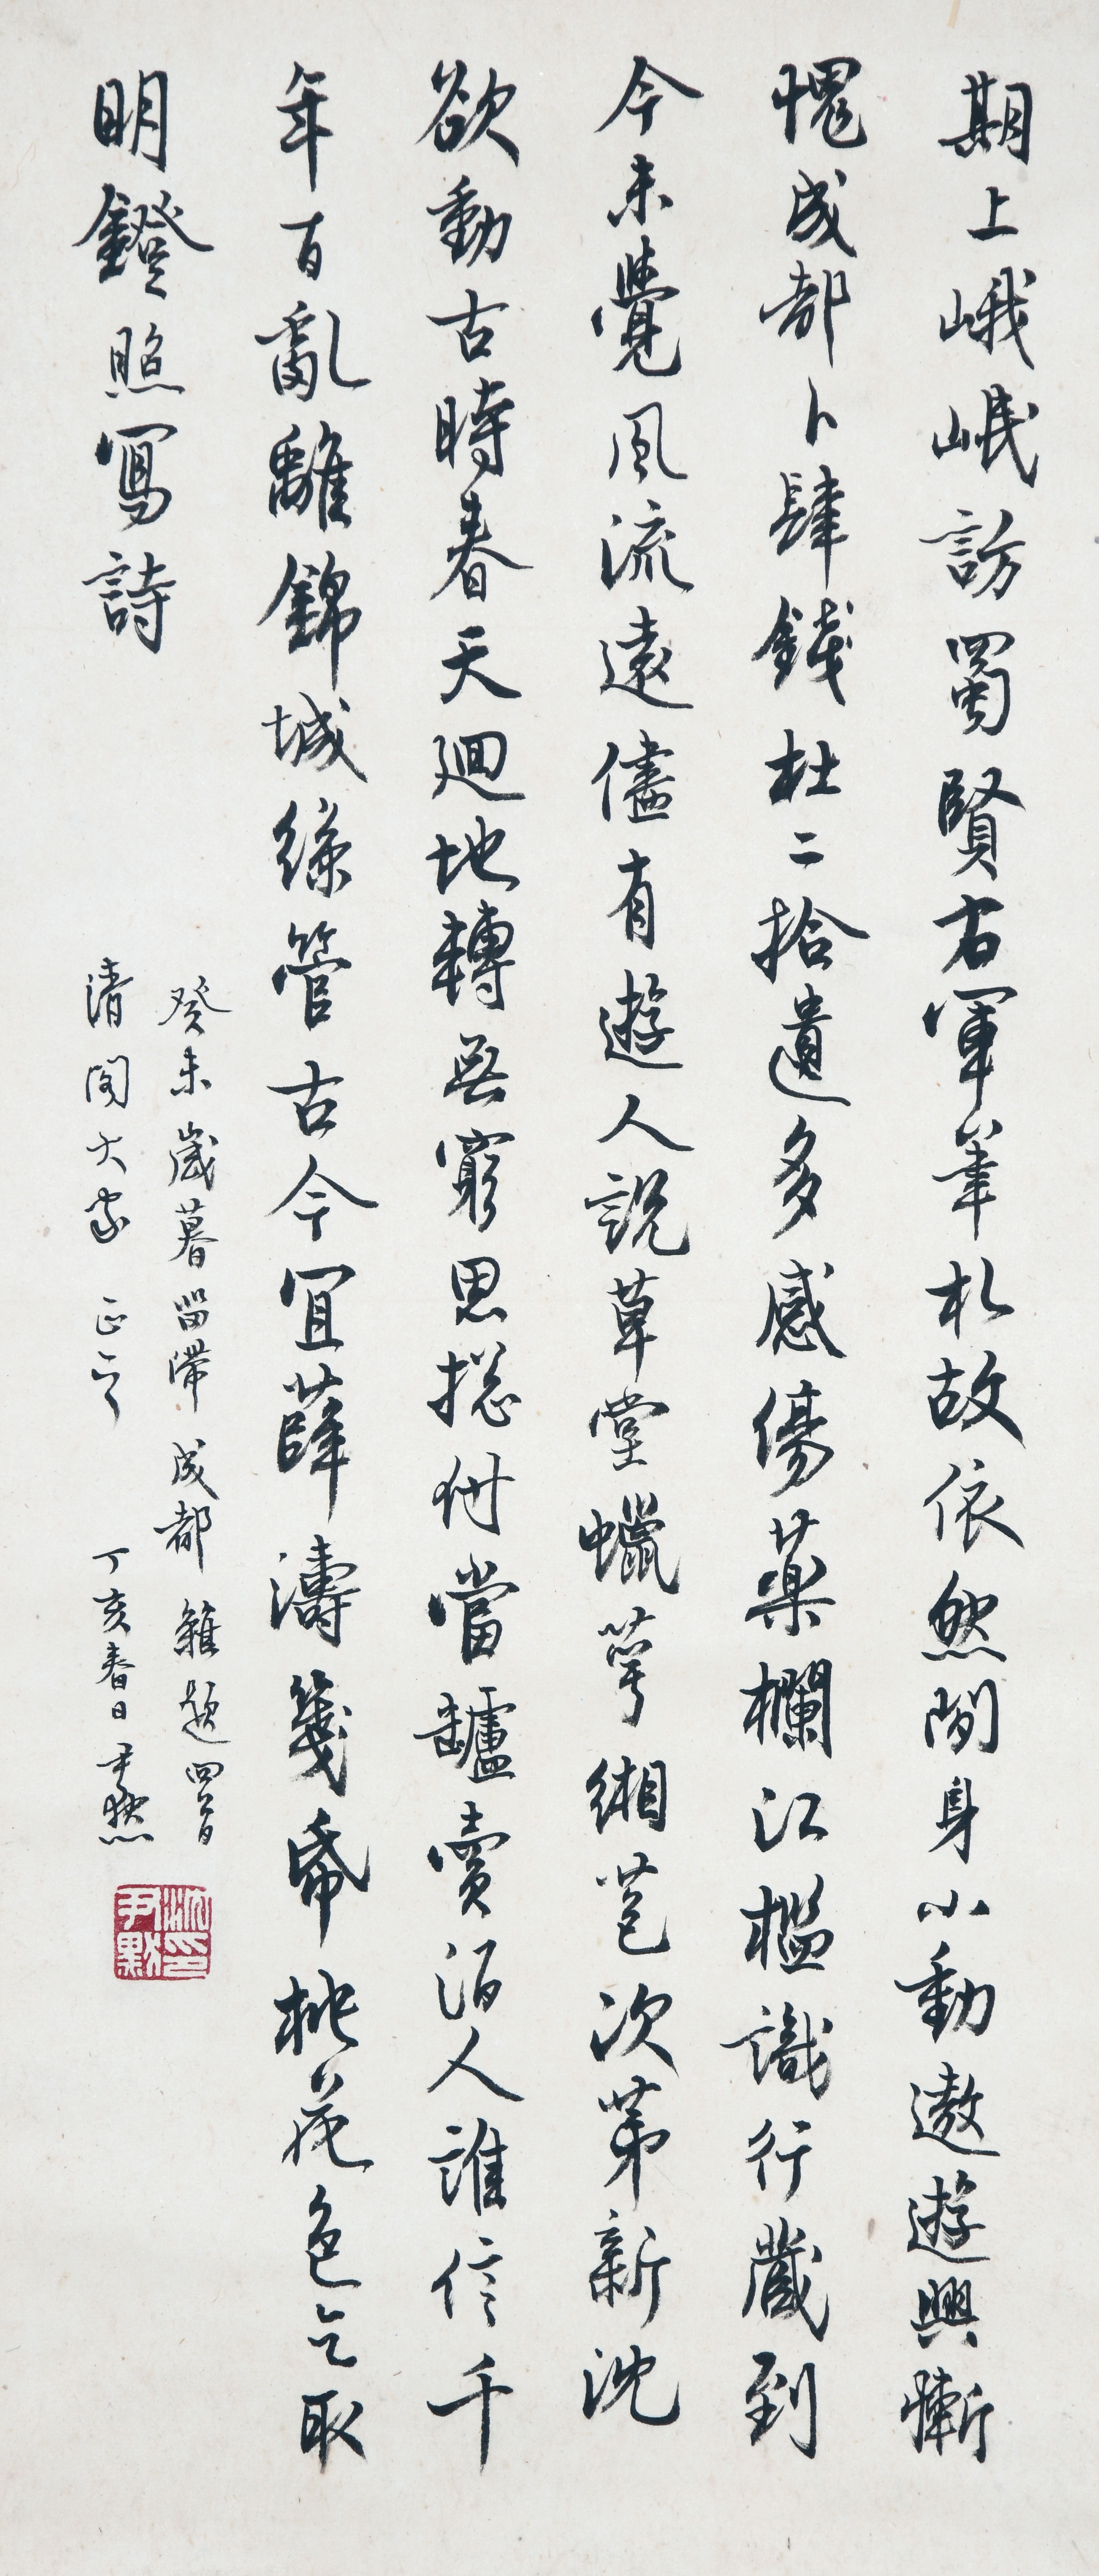 期上峨岷訪蜀賢右軍筆札故依然閒身小動遨遊興慚
愧成都卜肆錢杜二拾遺多感傷藥欄江檻識行藏到
今未覺風流遠儘有遊人說草堂蠟萼緗苞次第新沈
欲動古時春天迴地轉無窮思揔付當罏賣酒人誰信千
年百亂離錦城絲管古今宜薛濤箋紙桃花色乞取
明鐙照寫詩
癸未歲暮留滯成都雜題四首
清閣大家正之丁亥春日尹默
沈尹默印